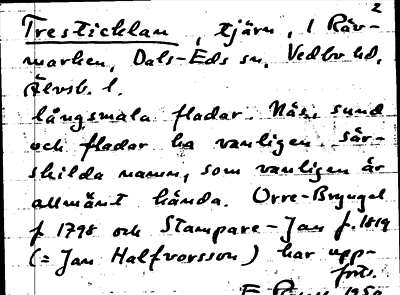 2
Tresticklan, tjärn, i Räv-
marken, Dals-Eds sn, Vedbo hd,
Älvsb. l.
långsmala fladar. Näs, sund
och fladar ha vanligen sär-
skilda namn, som vanligen är
allmänt kända. Orre-Bryngel
f 1798 och Stampare-Jan f. 1819
(= Jan Halfvorsson) har upp-
forts.
1950